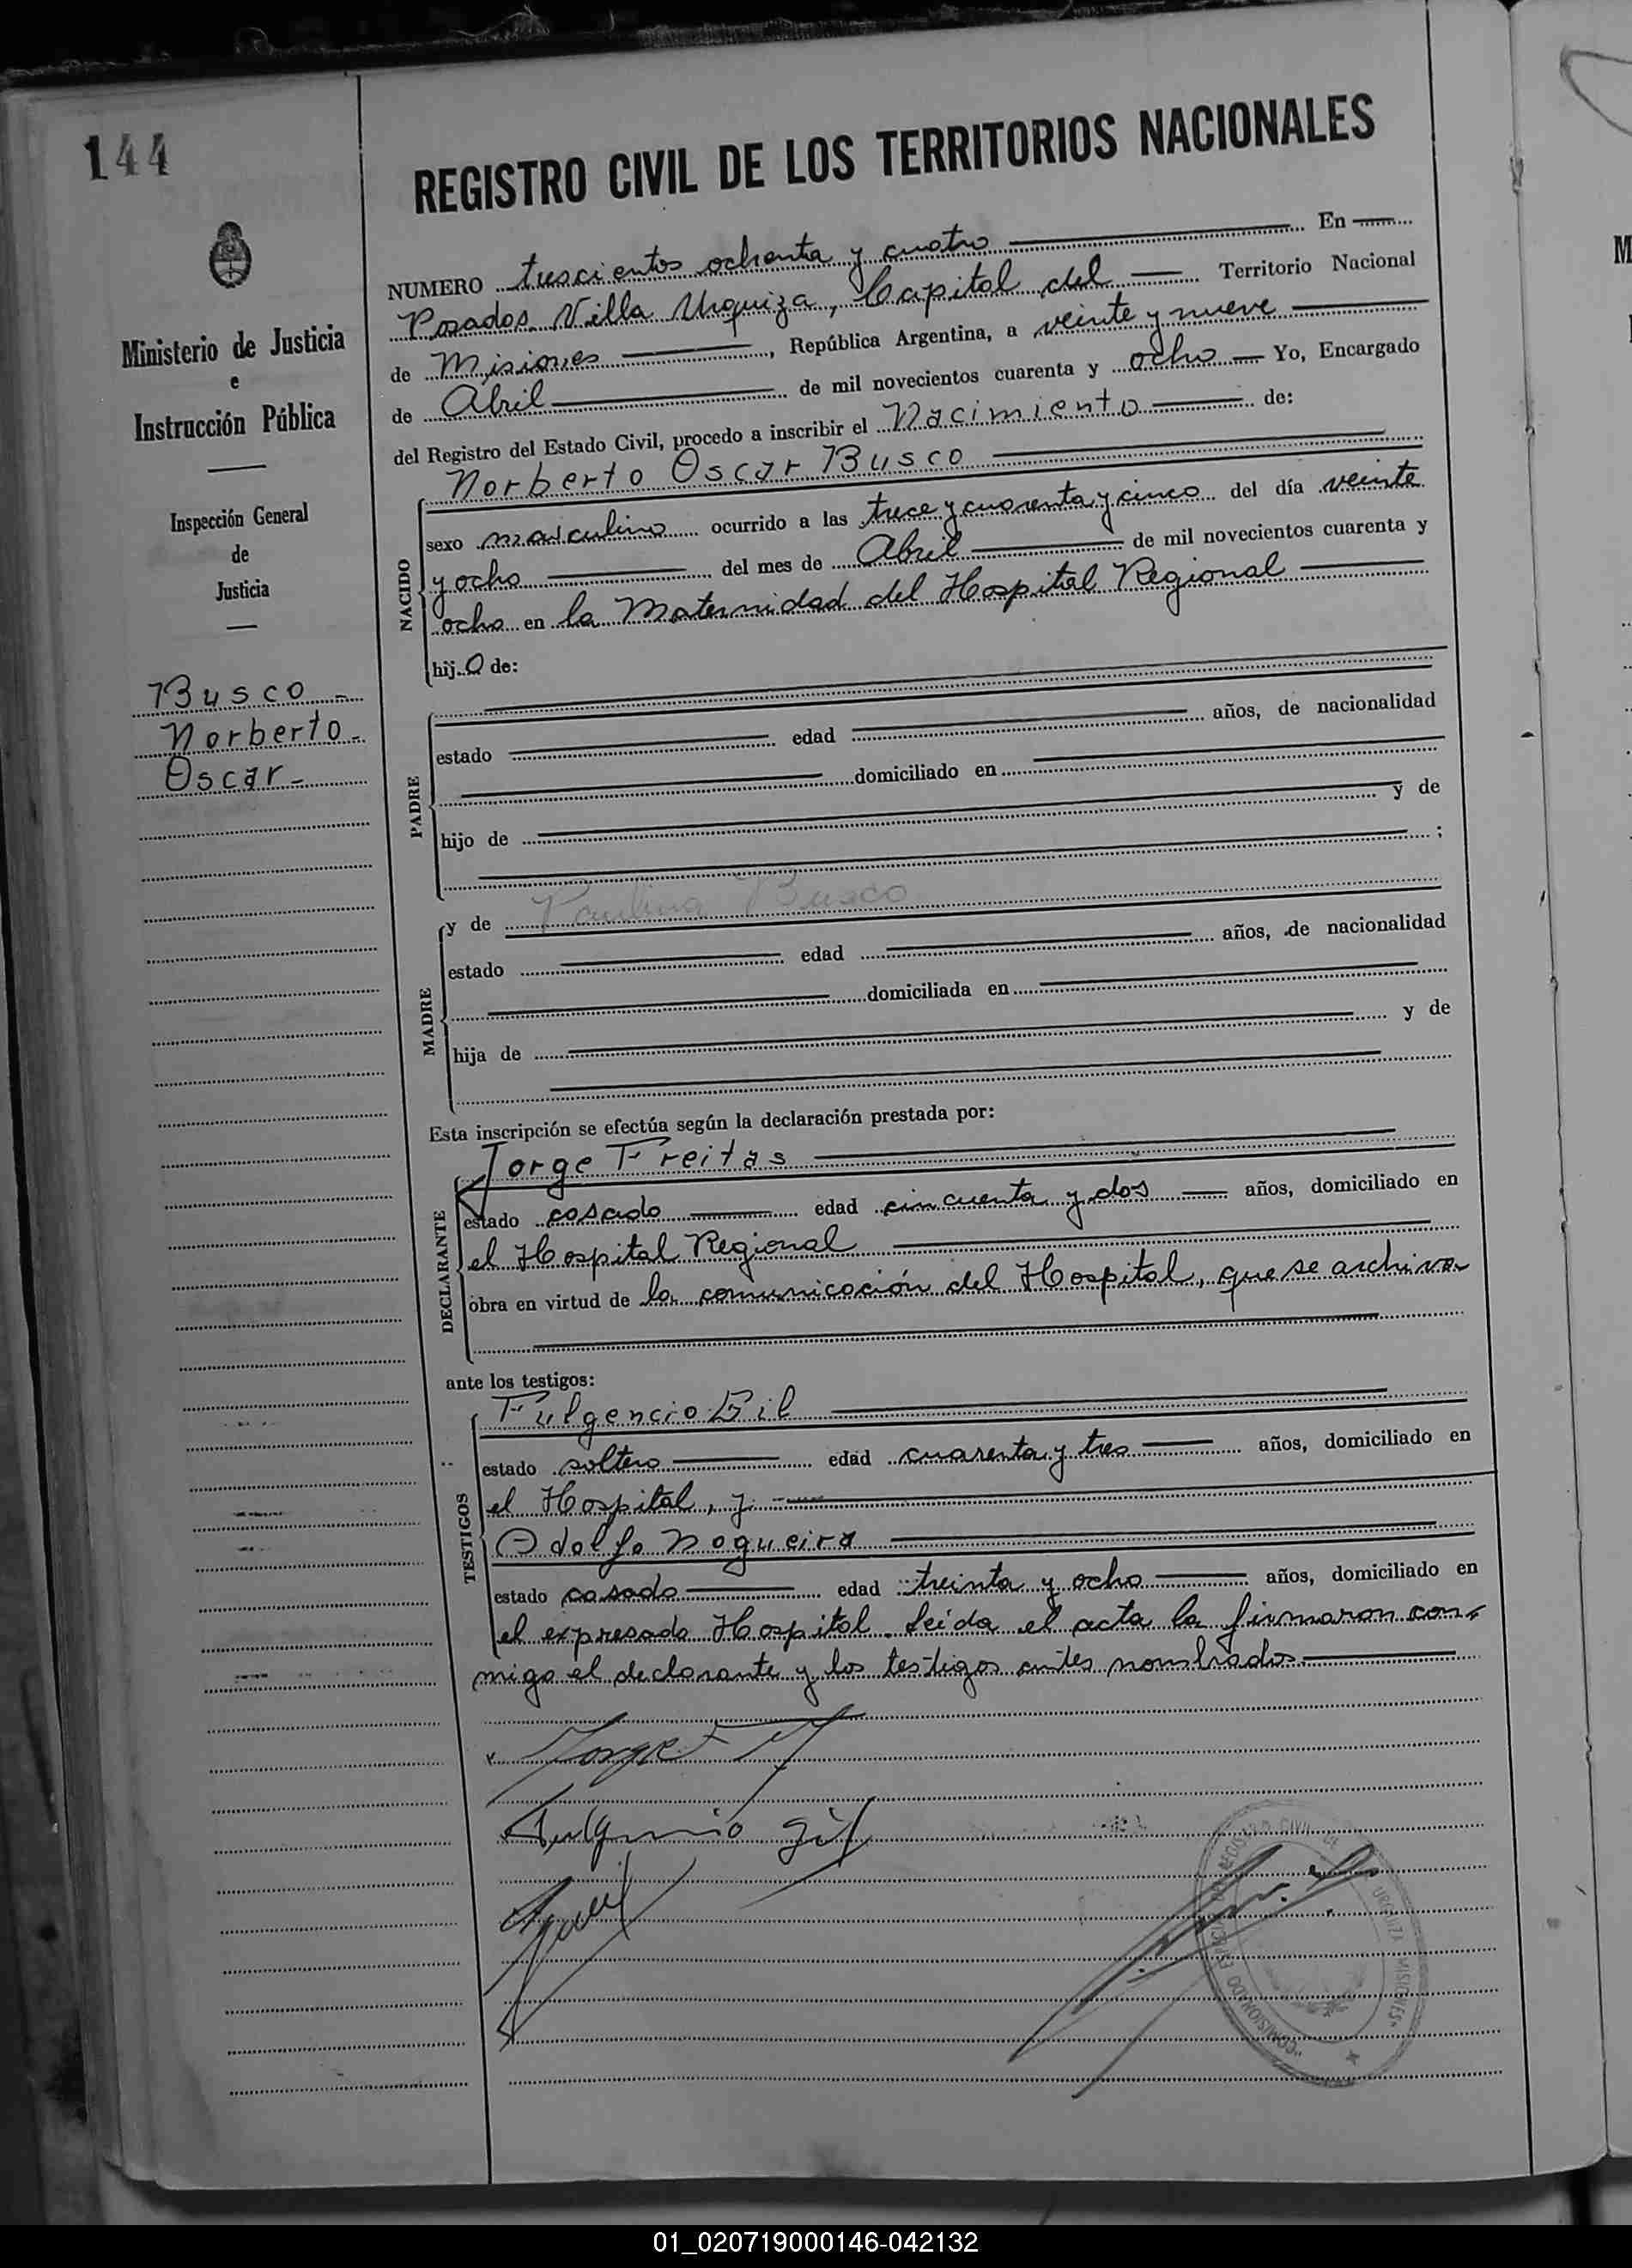 144
REGISTRO CIVIL DE LOS TERRITORIOS NACIONALES
Ministerio de Justicia
e
Instrucción Pública
Inspección General
de
Justicia
Busco
Norberto
Oscar
NUMERO trescientos ochenta y cuatro En
Posadas Villa Urquiza, Capital del Territorio Nacional
de Misiones, República Argentina, a veinte y nueve
de Abril de mil novecientos cuarenta y ocho Yo, Encargado
del Registro del Estado Civil, procedo a inscribir el Nacimiento de:
NACIDO
Norberto Oscar Busco
sexo masculino ocurrido a las trece y cuarenta y cinco del día veinte
y ocho del mes de Abril de mil novecientos cuarenta y
ocho en la Maternidad del Hospital Regional
hijo de:
PADRE
estado edad años, de nacionalidad
domiciliado en
hijo de y de
;
MADRE
y de Paulina Busco
estado edad años, de nacionalidad
domiciliada en
hija de y de
Esta inscripción se efectúa según la declaración prestada por:
DECLARANTE
Jorge Freitas
estado casado edad cincuenta y dos años, domiciliado en
el Hospital Regional
obra en virtud de la comunicación del Hospital, que se archiva
ante los testigos:
TESTIGOS
Fulgencio Gil
estado soltero edad cuarenta y tres años, domiciliado en
el Hospital, y
Adolfo Nogueira
estado casado edad treinta y ocho años, domiciliado en
el expresado Hospital. Leída el acta la firmaron con-
migo el declarante y los testigos antes nombrados
Jorge F
Fulgencio Gil
COMISIONADO ESPECIAL DEL REGISTRO CIVIL URQUIZA MISIONES
01_020719000146-042132